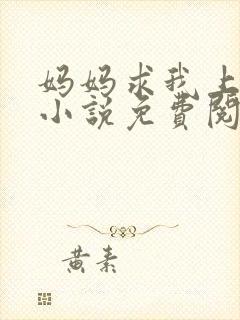 妈妈求我上
小说免費閱
黄素